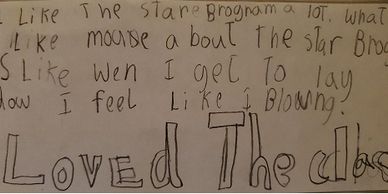 I Like The Stare Brogram a lot. what
Like mouse a bout The star Brog
S Like wen I get To lay
dow I feel Like I Blowng.
Loved The clas